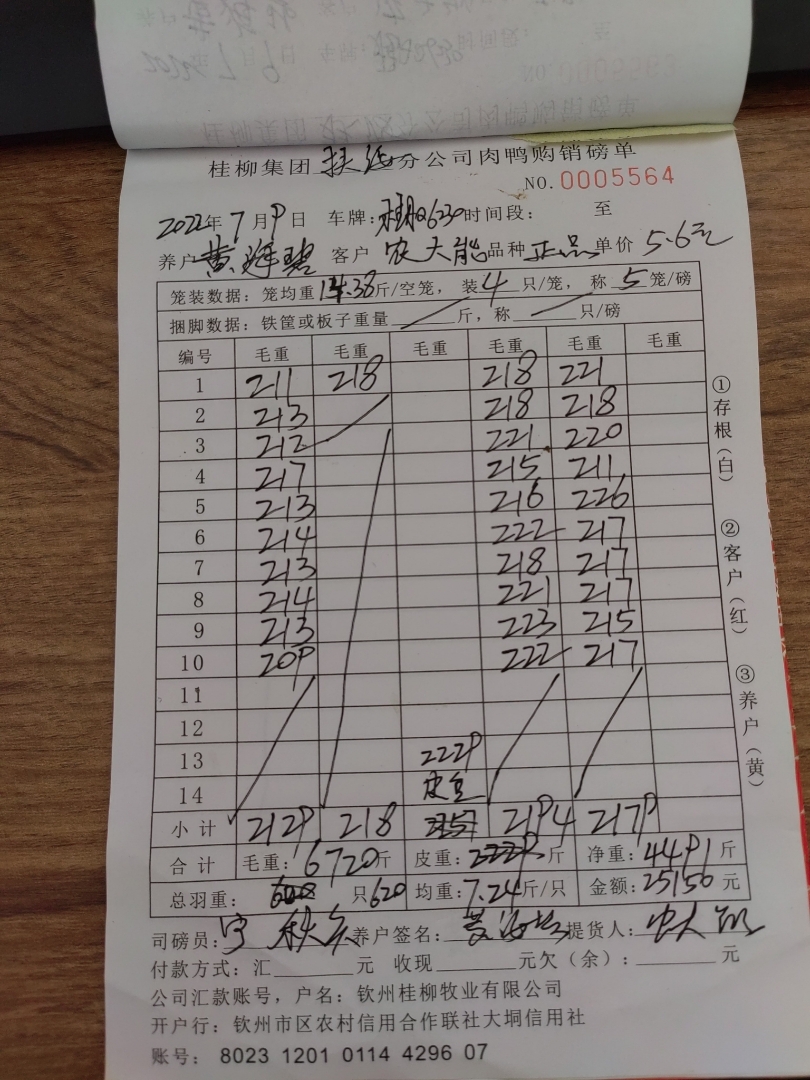 桂柳集团 扶绥 分公司肉鸭购销磅单
NO.0005564
2022年 7 月 9 日 车牌: 时间段: 至
养户 客户 农大能 品种 正品 单价 5.6元
笼装数据: 笼均重 14.38 斤/空笼, 装 4 只/笼, 称 5 笼/磅
捆脚数据: 铁筐或板子重量 斤, 称 只/磅
编号 毛重 毛重 毛重 毛重 毛重 毛重
1 211 218 218 221
2 213 218 218
3 212 221 220
4 217 215 211
5 213 216 226
6 214 222 217
7 213 218 217
8 214 221 217
9 213 223 215
10 209 222 217
11
12
13 2229
14 皮重
小计 2129 218 2194 2179
合计 毛重: 6720 斤 皮重: 斤 净重: 4491 斤
总羽重: 只 620 均重: 7.24 斤/只 金额: 25150 元
司磅员: 养户签名: 提货人: 农大能
付款方式: 汇 元 收现 元欠(余): 元
公司汇款账号,户名: 钦州桂柳牧业有限公司
开户行: 钦州市区农村信用合作联社大垌信用社
账号: 8023 1201 0114 4296 07
①存根(白)
②客户(红)
③养户(黄)